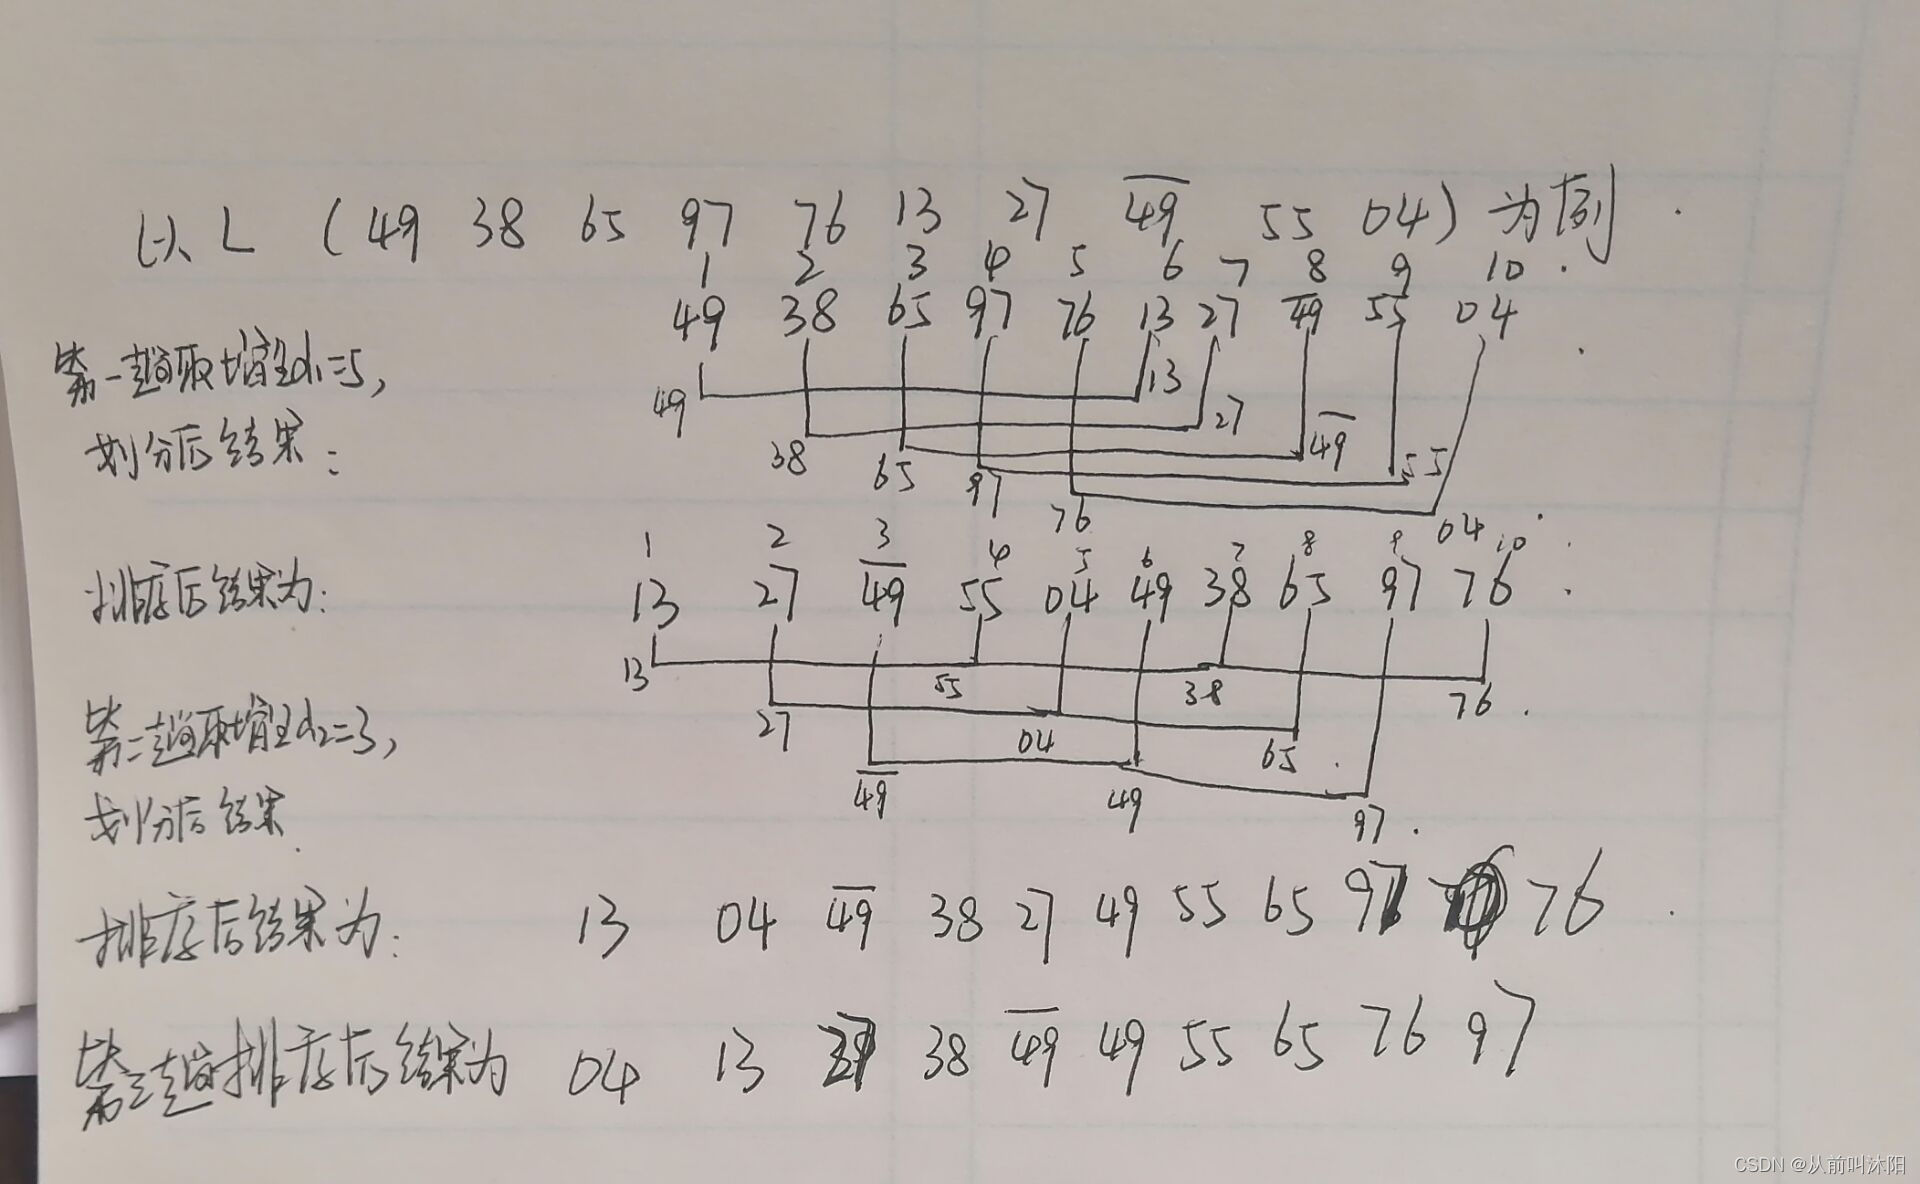 以 L (49 38 65 97 76 13 27 4̅9̅ 55 04) 为例.
1 2 3 4 5 6 7 8 9 10.
49 38 65 97 76 13 27 4̅9̅ 55 04
第一趟取增量d₁=5,
49 13
划分后结果:
38 27
65 4̅9̅
97 55
76 04
1 2 3 4 5 6 7 8 9 10
排序后结果为:
13 27 4̅9̅ 55 04 49 38 65 97 76
13 55 38 76
第二趟取增量d₂=3,
27 04 65
划分后结果
4̅9̅ 49 97
排序后结果为: 13 04 4̅9̅ 38 27 49 55 65 97 76
第三趟排序后结果为 04 13 27 38 4̅9̅ 49 55 65 76 97
CSDN @从前叫沐阳